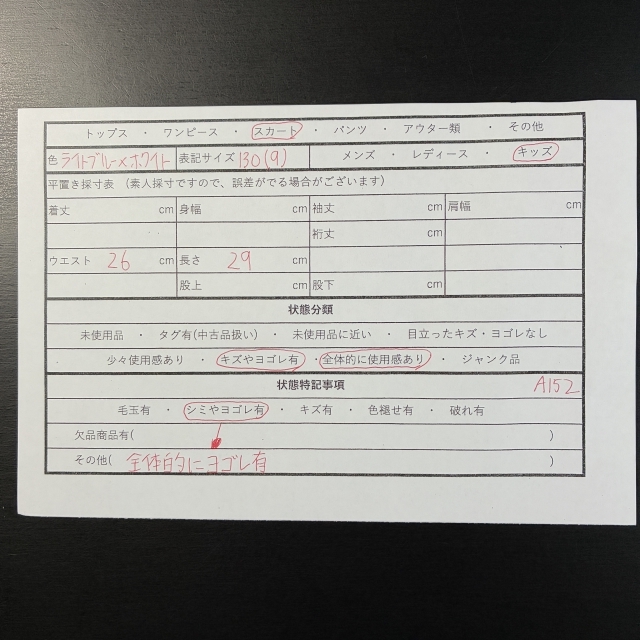 トップス ・ ワンピース ・ スカート ・ パンツ ・ アウター類 ・ その他
色 ライトブルー×ホワイト 表記サイズ 130(9) メンズ ・ レディース ・ キッズ
平置き採寸表 (素人採寸ですので、誤差がでる場合がございます)
着丈 cm 身幅 cm 袖丈 cm 肩幅 cm
裄丈 cm
ウエスト 26 cm 長さ 29 cm
股上 cm 股下 cm
状態分類
未使用品 ・ タグ有(中古品扱い) ・ 未使用品に近い ・ 目立ったキズ・ヨゴレなし
少々使用感あり ・ キズやヨゴレ有 ・ 全体的に使用感あり ・ ジャンク品
状態特記事項 A152
毛玉有 ・ シミやヨゴレ有 ・ キズ有 ・ 色褪せ有 ・ 破れ有
欠品商品有( )
その他( 全体的にヨゴレ有 )